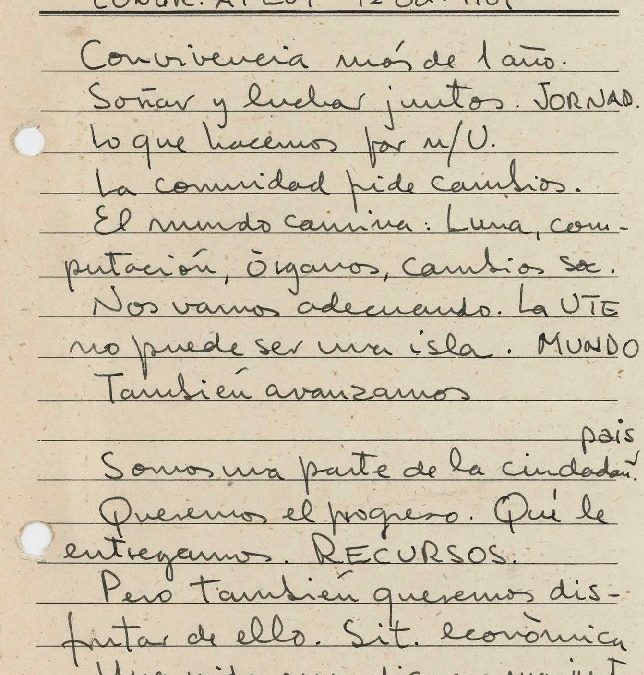 Convivencia más de 1 año.
Soñar y luchar juntos. JORNAD.
Lo que hacemos por n/U.
La comunidad pide cambios.
El mundo camina: Luna, com-
putación, Órganos, cambios soc.
Nos vamos adecuando. La UTE
no puede ser una isla. MUNDO
También avanzamos
país
Somos una parte de la ciudadañ.
Queremos el progreso. Qué le
entregamos. RECURSOS.
Pero también queremos dis-
frutar de ello. Sit. económica